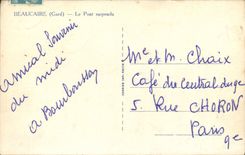 BEAUCAIRE (Gard) — Le Pont suspendu
Amical Souvenir
du midi
A Bourbousson
Mr et M. Chaix
Café du Central
5. Rue CHORON
Paris
9e